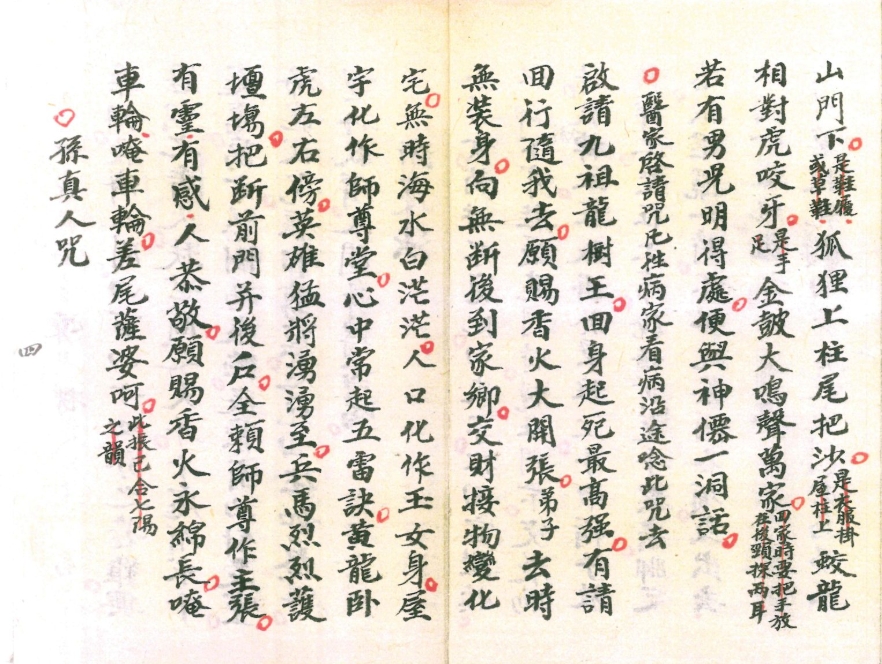 山門下是鞋履或草鞋狐狸上柱尾把沙是衣服掛屋柱上蛟龍
相對虎咬牙是手足金皷大鳴聲萬家回家時要把手放在後頸探两耳
若有男児明得處便與神僊一洞話
醫家啓請咒凡往病家看病沿途唸此咒去
啟請九祖龍樹王回身起死最高强有請
回行隨我去願賜香火大開張弟子去時
無装身向無斷後到家鄉交財接物變化
宅無時海水白茫茫人口化作玉女身屋
宇化作師尊堂心中常起五雷訣黄龍卧
虎左右傍英雄猛將湧湧至兵馬烈烈護
壇塲把斷前門并後戶全賴師尊作主張
有靈有感人恭敬願賜香火永綿長唵
車輪唵車輪差尾薩婆呵此振己合七陽之韻
孫真人咒
四